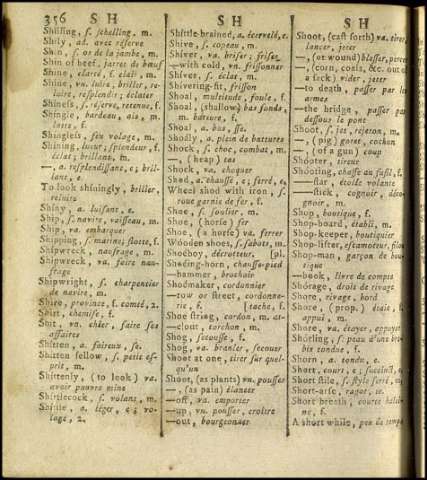 356 S H
Shilling, s. schelling, m.
Shily, ad. avec réserve
Shin, s. or de la jambe, m.
Shin of beef, jarret de bœuf
Shine, clarté, f. eclat, m.
Shine, vn. luire, briller, re-
luire, resplendir; éclater
Shiness, s. réserve, retenue, f.
Shingle, bardeau, ais, m.
latte, f.
Shingles, feu volage, m.
Shining, lueur; splendeur, f.
éclat; brillant, m.
—, a. resplendissant, e; bril-
lant, e.
To look shiningly, briller,
reluire
Shiny, a. luisant, e.
Ship, s. navire, vaisseau, m.
Ship, va. embarquer
Shipping, s. marine; flotte, f.
Shipwreck, naufrage, m.
Shipwreck, va. faire nau-
frage
Shipwright, s. charpentier
de navire, m.
Shire, province, f. comté, 2.
Shirt, chemise, f.
Shit, vn. chier, faire ses
affaires
Shitten, a. foireux, se.
Shitten fellow, s. petit es-
prit, m.
Shittenly, (to look) va.
avoir pauvre mine
Shittlecock, s. volant, m.
Shittle, a. léger, e; vo-
lage, 2.
S H
Shittle-brained, a. écervelé, e.
Shive, s. copeau, m.
Shiver, va. briser; frisson
—with cold, vn. frissonner
Shiver, s. éclat, m.
Shivering-fit, frisson
Shoal, multitude, foule, f.
Shoal, (shallow) bas fonds,
m. bature, f.
Shoal, a. bas, sse.
Shoally, a. plein de battures
Shock, s. choc, combat, m.
—, (heap) tas
Shock, va. choquer
Shod, a. chaussé, e; ferré, e,
Wheel shod with iron, s.
roue garnie de fer, f.
Shoe, s. soulier, m.
Shoe, (horse) fer
Shoe, (a horse) va. ferrer
Wooden shoes, s. sabots, m.
Shoeboy, décrotteur, [pl.
Shoeing-horn, chausse-pied
—hammer, brochoir
Shoemaker, cordonnier
—tow or street, cordonne-
rie, f. [tache, f.
Shoe string, cordon, m. at-
—clout, torchon, m.
Shog, secousse, f.
Shog, va. branler, secouer
Shoot at one, tirer sur quel-
qu'un
Shoot, (as plants) vn. pousser
—, (as pain) élancer
—off, va. emporter
—up, vn. pousser, croître
—out, bourgeonner
S H
Shoot, (cast forth) va. tirer,
lancer, jeter
—, (or wound) blesser, percer
—, (corn, coals, &c. out of
a sack) vider, jeter
—to death, passer par les
armes
—the bridge, passer par
dessous le pont
Shoot, s. jet, rejeton, m.
—, (pig) goret, cochon
—, (of a gun) coup
Shooter, tireur
Shooting, chasse au fusil, f.
—star, étoile volante
—stick, cognoir, décoi-
gnoir, m.
Shop, boutique, f.
Shop-board, établi, m.
Shop-keeper, boutiquier
Shop-lifter, escamoteur, filou
Shop-man, garçon de bou-
tique
—book, livre de compte
Shorage, droit de rivage
Shore, rivage, bord
Shore, (prop.) étaie, f.
appui, m.
Shore, va. étayer, appuyer
Shorling, s. peau d'une bre-
bis tondue, f.
Shorn, a. tondu, e.
Short, court, e; succinct, e
Short stile, s. style serré, m.
Short-arse, ragot, te.
Short breath, courte halei-
ne, f.
A short while, peu de temps